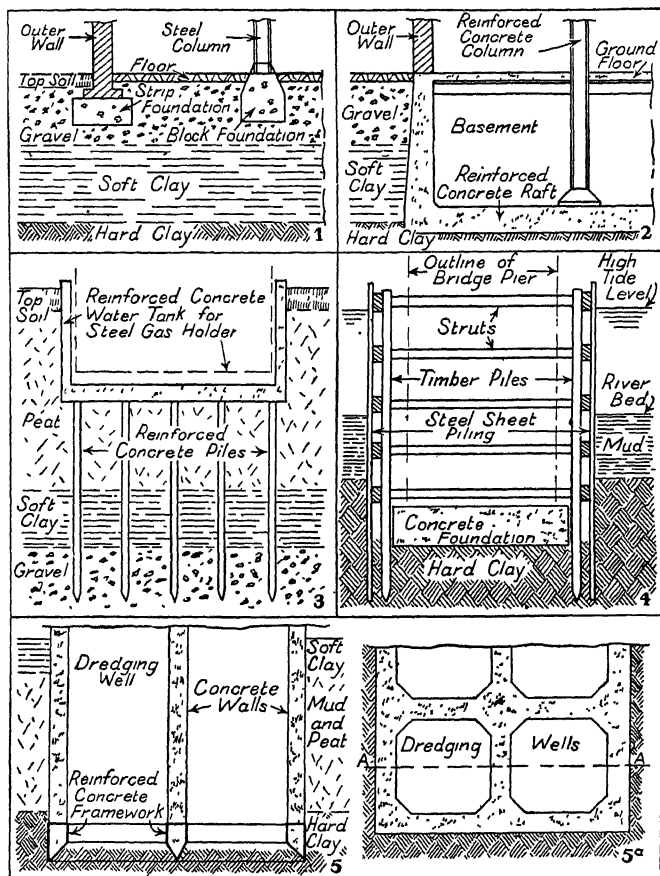 Outer
Wall
Steel
Column
Floor
Top Soil
Strip
Foundation
Gravel
Block Foundation
Soft Clay
Hard Clay
1
Outer
Wall
Reinforced
Concrete
Column
Ground
Floor
Gravel
Basement
Soft
Clay
Reinforced
Concrete Raft
Hard Clay
2
Top
Soil
Reinforced Concrete
Water Tank for
Steel Gas Holder
Peat
Reinforced
Concrete Piles
Soft
Clay
Gravel
3
Outline of
Bridge Pier
High
Tide
Level
Struts
Timber Piles
River
Bed
Steel Sheet
Piling
Mud
Concrete
Foundation
Hard Clay
4
Dredging
Well
Concrete
Walls
Soft
Clay
Mud
and
Peat
Reinforced
Concrete
Framework
Hard
Clay
5
Dredging Wells
A A
5a